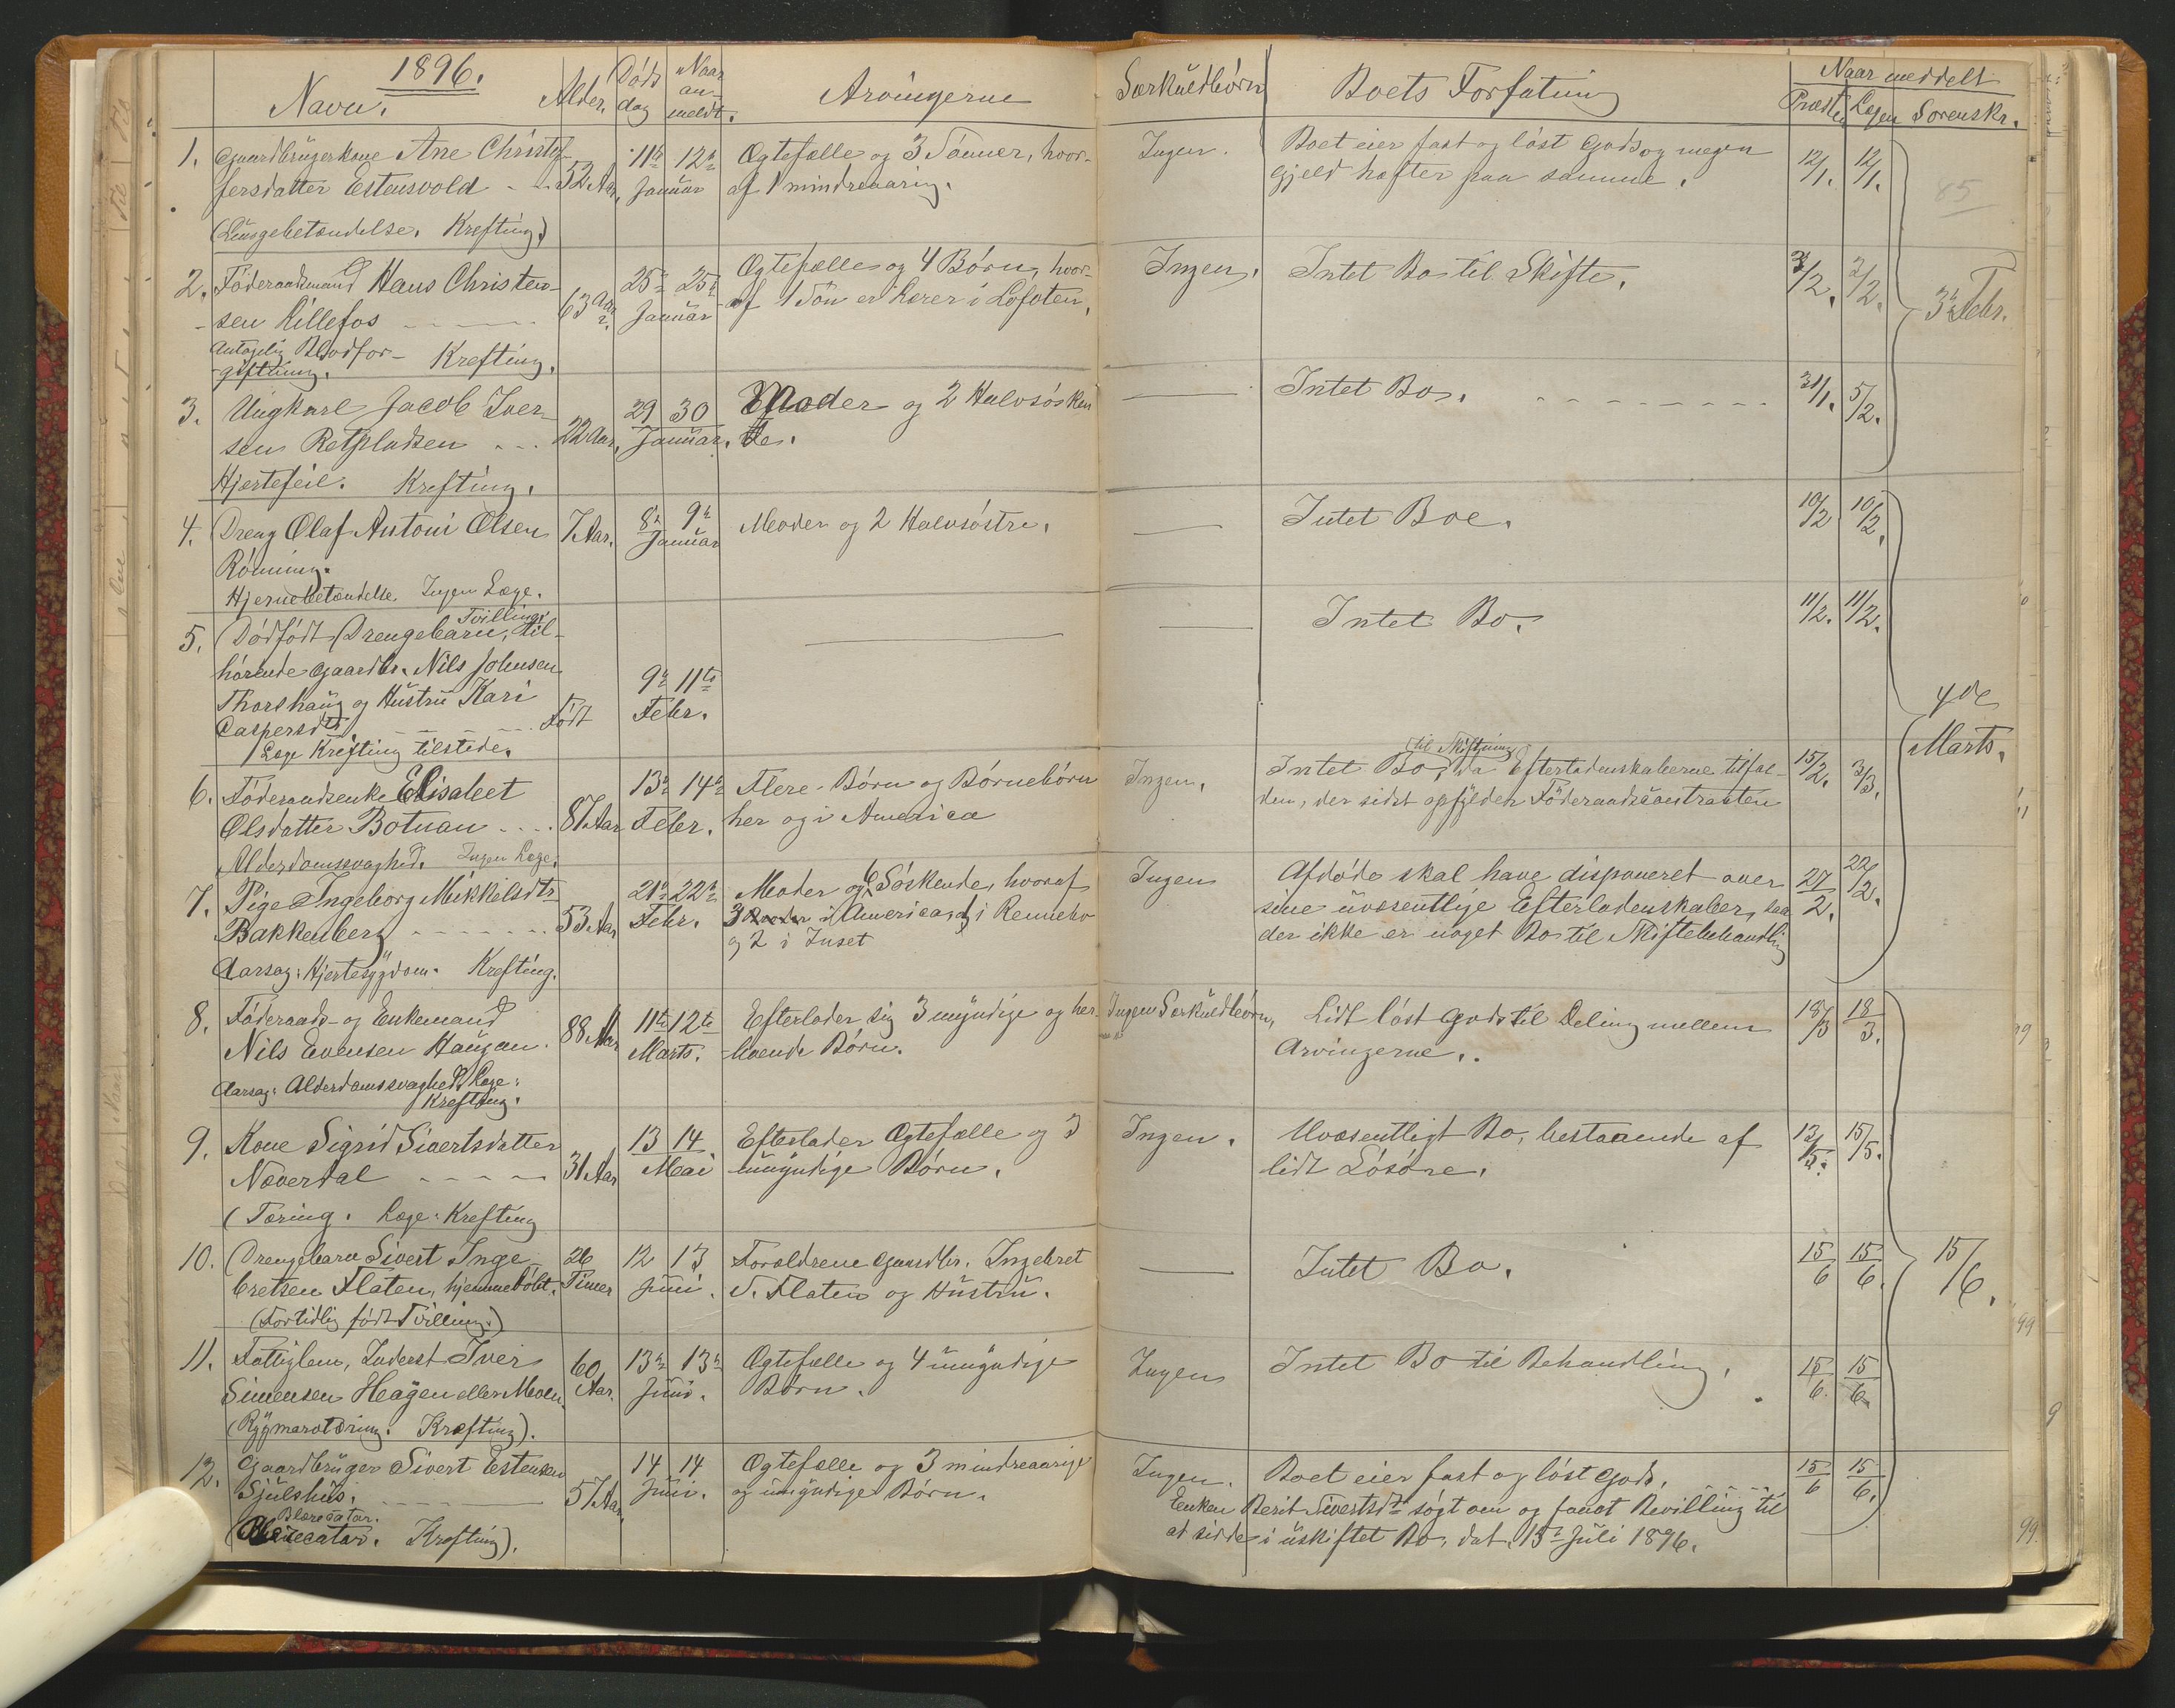 1896.
Navn. Alder. Døds dag Naar anmeldt. Arvingerne Særkuldbørn Boets Forfatning Naar meddelt
Præsten Lægen Sorenskr.
1. Gaardbrugerkone Ane Christof- 11te 12te Ægtefælle og 3 Sønner, hvor- Ingen. Boet eier fast og løst Gods og megen 12/1. 12/1.
fersdatter Estensvold - - 52 Aar. Januar af 1 mindreaarig. Gjeld hefter paa samme. 85
(Lungebetændelse. Krefting.)
2. Føderaadsmand Hans Christen- 25de 25de Ægtefælle og 4 Børn, hvor- Ingen. Intet Bo til Skifte. 3/2. 3/2.
sen Lillefos - - - - 63 Aar. Januar af 1 Søn er Lærer i Lofoten. 3die Febr.
Antagelig Blodfor-
giftning. Krefting.
3. Ungkarl Jacob Iver- 29 30 Moder og 2 Halvsøsken Intet Bo. - - - - - - 31/1. 5/2.
sen Retpladsen - - - 22 Aar. Januar. de.
Hjertefeil. Krefting.
4. Dreng Olaf Antoni Olsen 7 Aar. 8de 9de Moder og 2 Halvsøstre. Intet Boe. 10/2 10/2.
Rønning. Januar
Hjernebetændelse. Ingen Læge.
Tvilling
5. Dødfødt Drengebarn, til- Intet Bo. 11/2. 11/2.
hørende Gaardbr. Nils Johnsen 9de 11te
Thorshaug og Hustru Kari
Caspersdtr. - - - - født Febr. 4de Marts.
Læge Krefting tilstede.
til Skiftning
6. Føderaadsenke Elisabet 13de 14de Flere Børn og Børnebørn Ingen. Intet Bo, da Efterladenskaberne tilfal- 15/2. 3/3.
Olsdatter Botnan - - - 87 Aar Febr. her og i America den, der sidst opfylder Føderaadscontracten
Alderdomssvaghed. Ingen Læge.
7. Pige Ingeborg Mikkelsdtr 21de 22de Moder og 6 Søskende, hvoraf Ingen Afdøde skal have disponeret over 27/2. 22/2.
Bakkenberg - - - - 53 Aar Febr. 3 i America, 1 i Rennebo sine uvæsentlige Efterladenskaber, saa
og 2 i Inset der ikke er noget Bo til Skiftebehandling
Aarsag: Hjertesygdom. Krefting.
8. Føderaads- og Enkemand 88 Aar 11te 12te Efterlader sig 3 myndige og her- Ingen Særkuldbørn, Lidt løst Gods til Deling mellem 18/3 18/3.
Nils Evensen Haugan. Marts. boende Børn. Arvingerne.
Aarsag: Alderdomssvaghed. Læge:
Krefting.
9. Kone Sigrid Sivertsdatter 13 14. Efterlader Ægtefælle og 3 Ingen. Uvæsentligt Bo, bestaaende af 13/5. 15/5.
Næverdal - - - - 31 Aar Mai umyndige Børn. lidt Løsøre.
(Tæring. Læge: Krefting
10. Drengebarn Sivert Inge- 26 12 13 Forældrene Gaardbr. Ingebret Intet Bo. 15/6 15/6. 15/6.
bretsen Flaten, hjemmedøbt. Timer Juni. S. Flaten og Hustru.
(Fortidlig født Tvilling.)
11. Fattiglem, Inderst Iver 60 13de 13de Ægtefælle og 4 umyndige Ingen Intet Bo til Behandling. 15/6. 15/6.
Simensen Heagen eller Moen. Aar. Juni. Børn.
(Rygmarvtæring. Krefting).
12. Gaardbruger Sivert Estensen 14 14 Ægtefælle og 3 mindreaarige Ingen. Boet eier fast og løst Gods. - - - 15/6 15/6.
Sjulshus. - - - - 57 Aar. Juni. og umyndige Børn. Enken Berit Sivertsdtr søgt om og faaet Bevilling til
Blærecatar. at sidde i uskiftet Bo, dat. 15de Juli 1896.
(Blærecatar. Krefting).